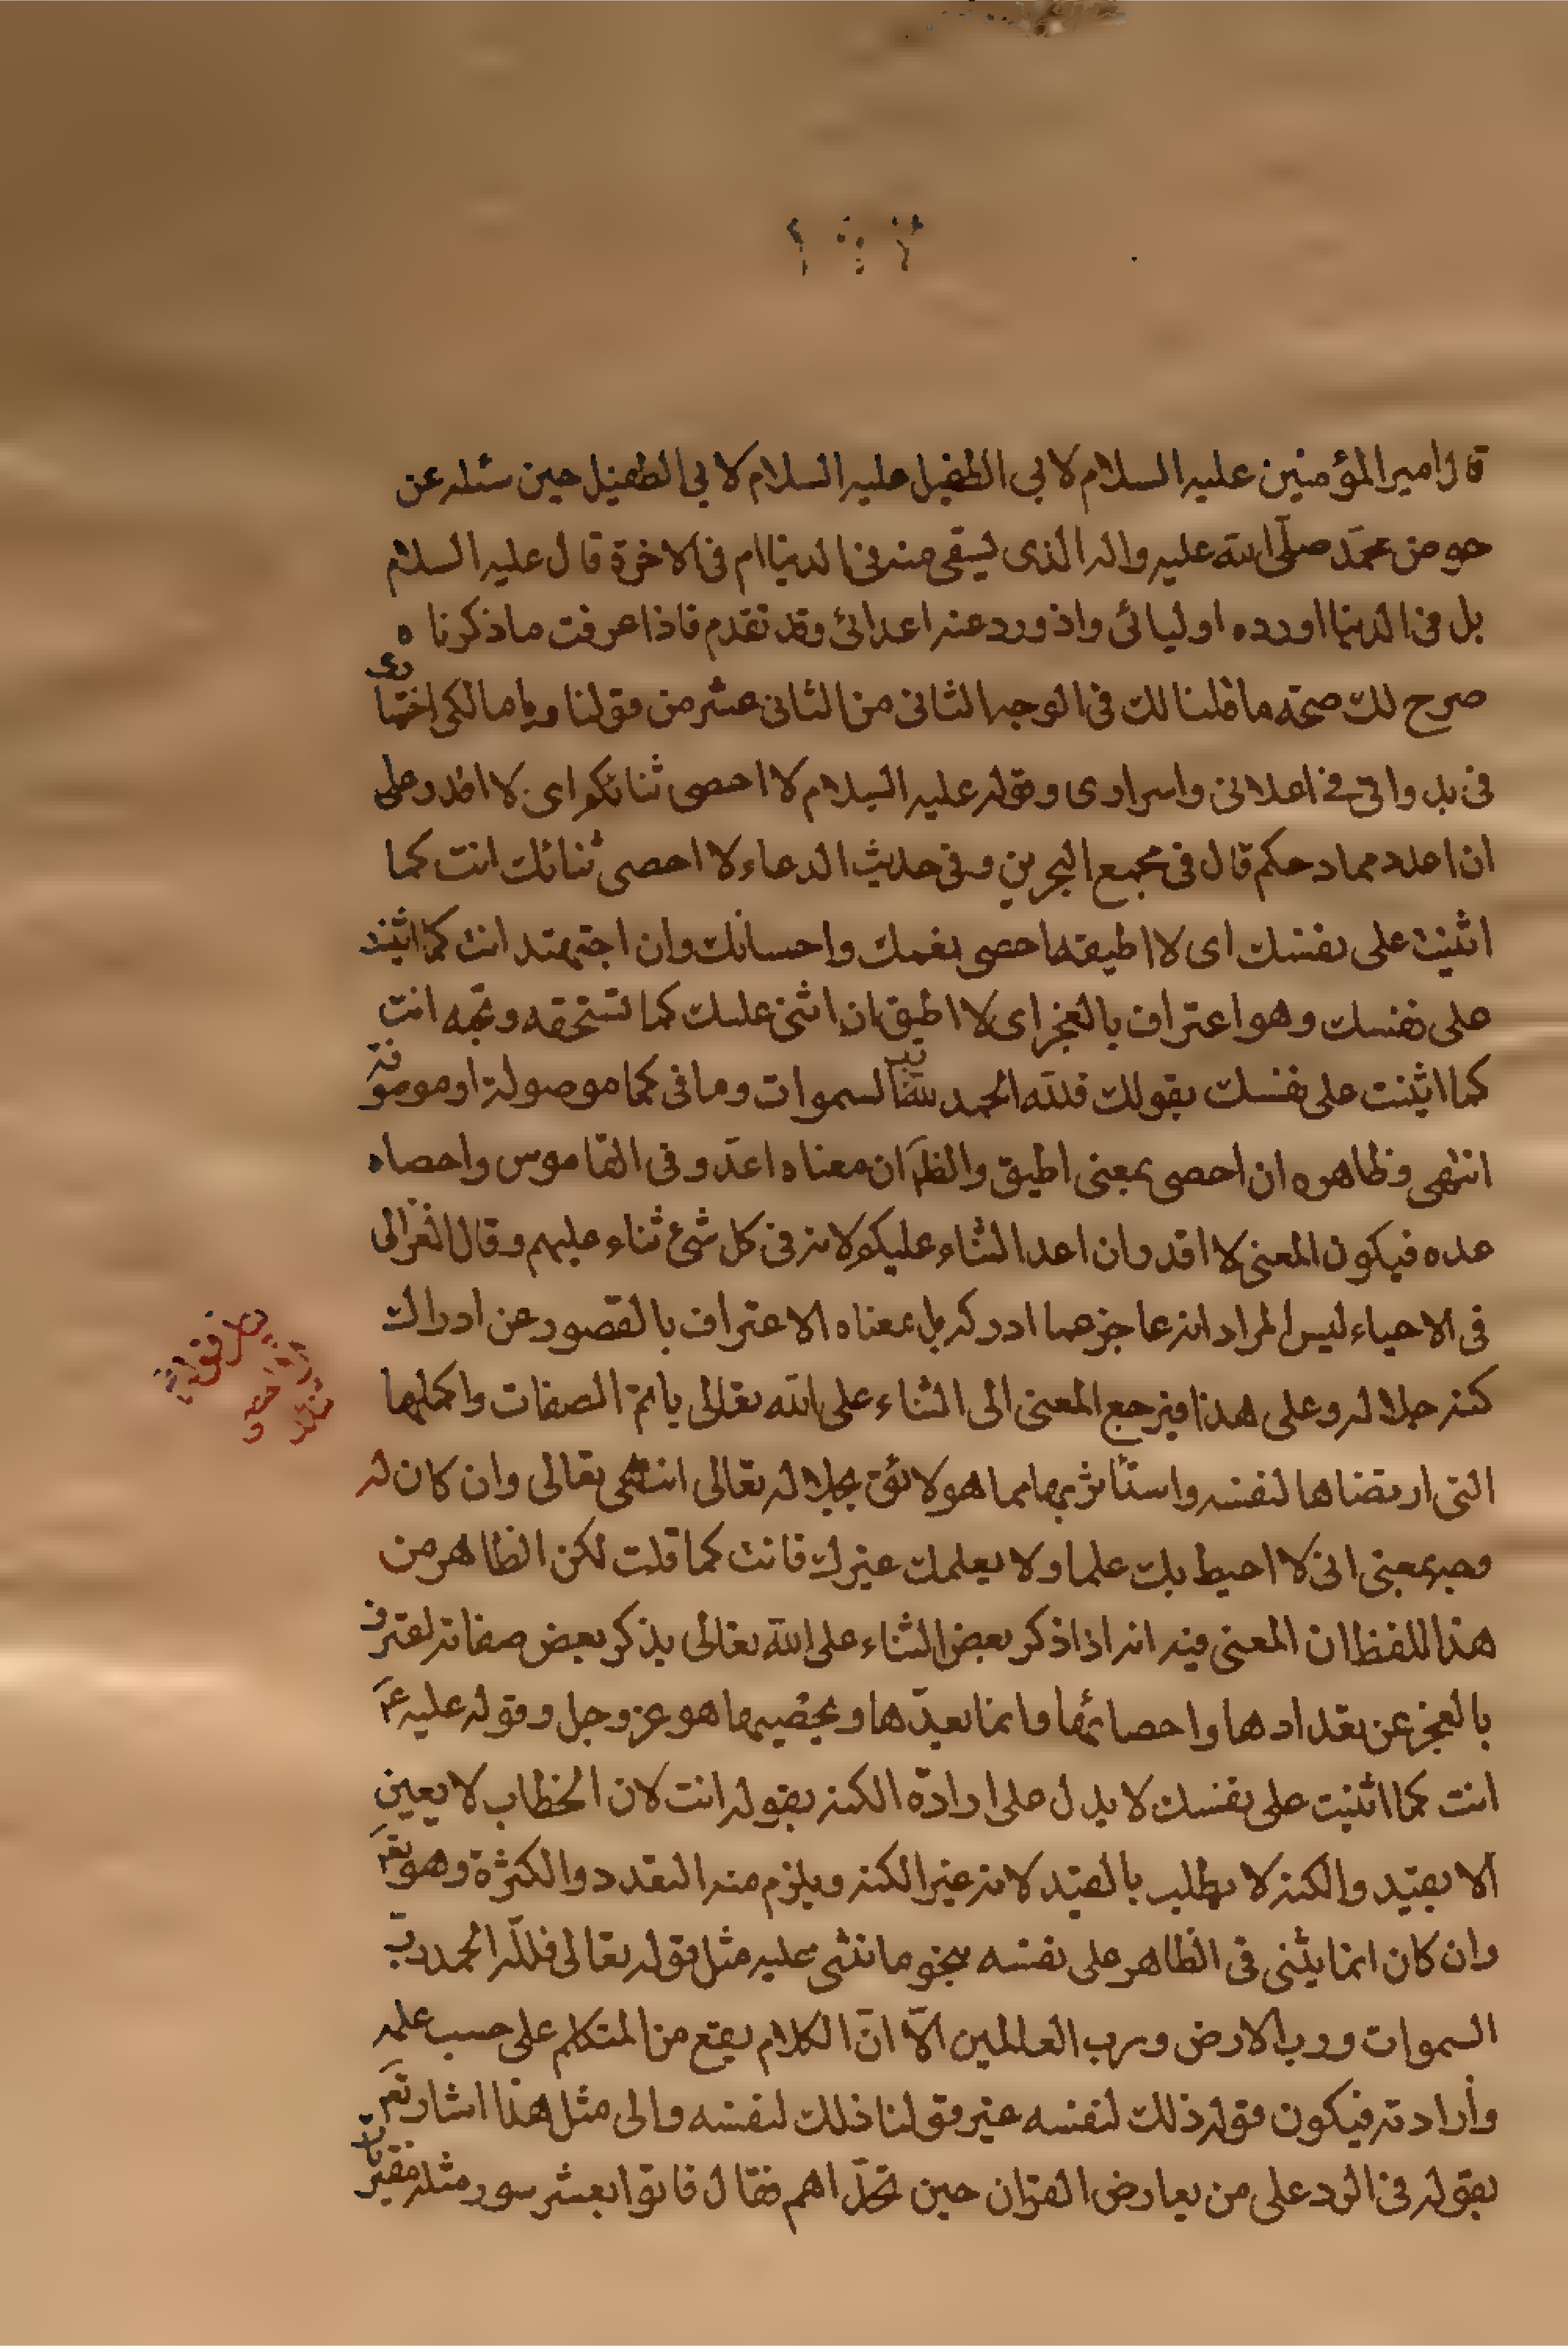 قال امير المؤمنين عليه السلام لابى الطفيل عليه السلام لابى الطفيل حين سئله عن
حوض محمّد صلّى الله عليه واله الذى يسقى منه فى الدنيا ام فى الاخرة قال عليه السلام
بل فى الدنيا اورده اوليائى واذ ورد عنه اعدائى وقد تقدم فاذا عرفت ما ذكرناه
صرح لك صحّة ما قلنا لك فى الوجه الثانى من الثانى عشر من قولنا ويا مالكى اختيارى
فى بدواتى فى اعلانى واسرارى وقوله عليه السلام لا احصى ثنائكم اى لا اقدر على
ان اعدد ممادحكم قال فى مجمع البحرين وفى حديث الدعاء لا احصى ثنائك انت كما
اثنيت على نفسك اى لا اطيقه احصى نعمك واحسانك وان اجتهد انت كما اثنيت
على نفسك وهو اعتراف بالعجز اى لا اطيق ان اثنى عليك كما تستحقه وتحبه انت
كما اثنيت على نفسك بقولك فلله الحمد رب السموات وما فى كما موصولة او موصوفة
انتهى وظاهره ان احصى بمعنى اطيق والظَ ان معناه اعدّ وفى القاموس واحصاه
عده فيكون المعنى لا اقدر ان اعد الثناء عليكم لانه فى كل شئ ثناء عليهم وقال الغزالى
فى الاحياء ليس المراد انه عاجز عما ادركه بل معناه الاعتراف بالقصور عن ادراك
كنه جلاله وعلى هذا فيرجع المعنى الى الثناء على الله تعالى باتمّ الصفات واكملها
التى ارتضاها لنفسه واستأثر بها مما هو لائق بجلاله تعالى انتهى تعالى وان كان له
وجه بمعنى انى لا احيط بك علما ولا يعلمك غيرك فانت كما قلت لكن الظاهر من
هذا اللفظ ان المعنى فيه انه اذا ذكر بعض الثناء على الله تعالى بذكر بعض صفاته لعترف
بالعجز عن تعدادها واحصائها وانما يعدّها ويحصيها هو عز وجل وقوله عليه عَ
انت كما اثنيت على نفسك لا يدل على ارادة الكنه بقوله انت لان الخطاب لا يعين
الا بقيد والكنه لا يطلب بالقيد لانه غير الكنه ويلزم منه التعدد والكثرة وهو تعَ
وان كان انما يثنى فى الظاهر على نفسه بنحو ما نثنى عليه مثل قوله تعالى فلله الحمد رب
السموات ورب الارض ورب العالمين الّا انّ الكلام يقع من المتكلم على حسب علمه
وارادته فيكون قوله ذلك لنفسه غير قولنا ذلك لنفسه والى مثل هذا اشار تعَ
بقوله فى الرد على من يعارض القران حين تحدّاهم فقال فاتوا بعشر سور مثله مفتريات